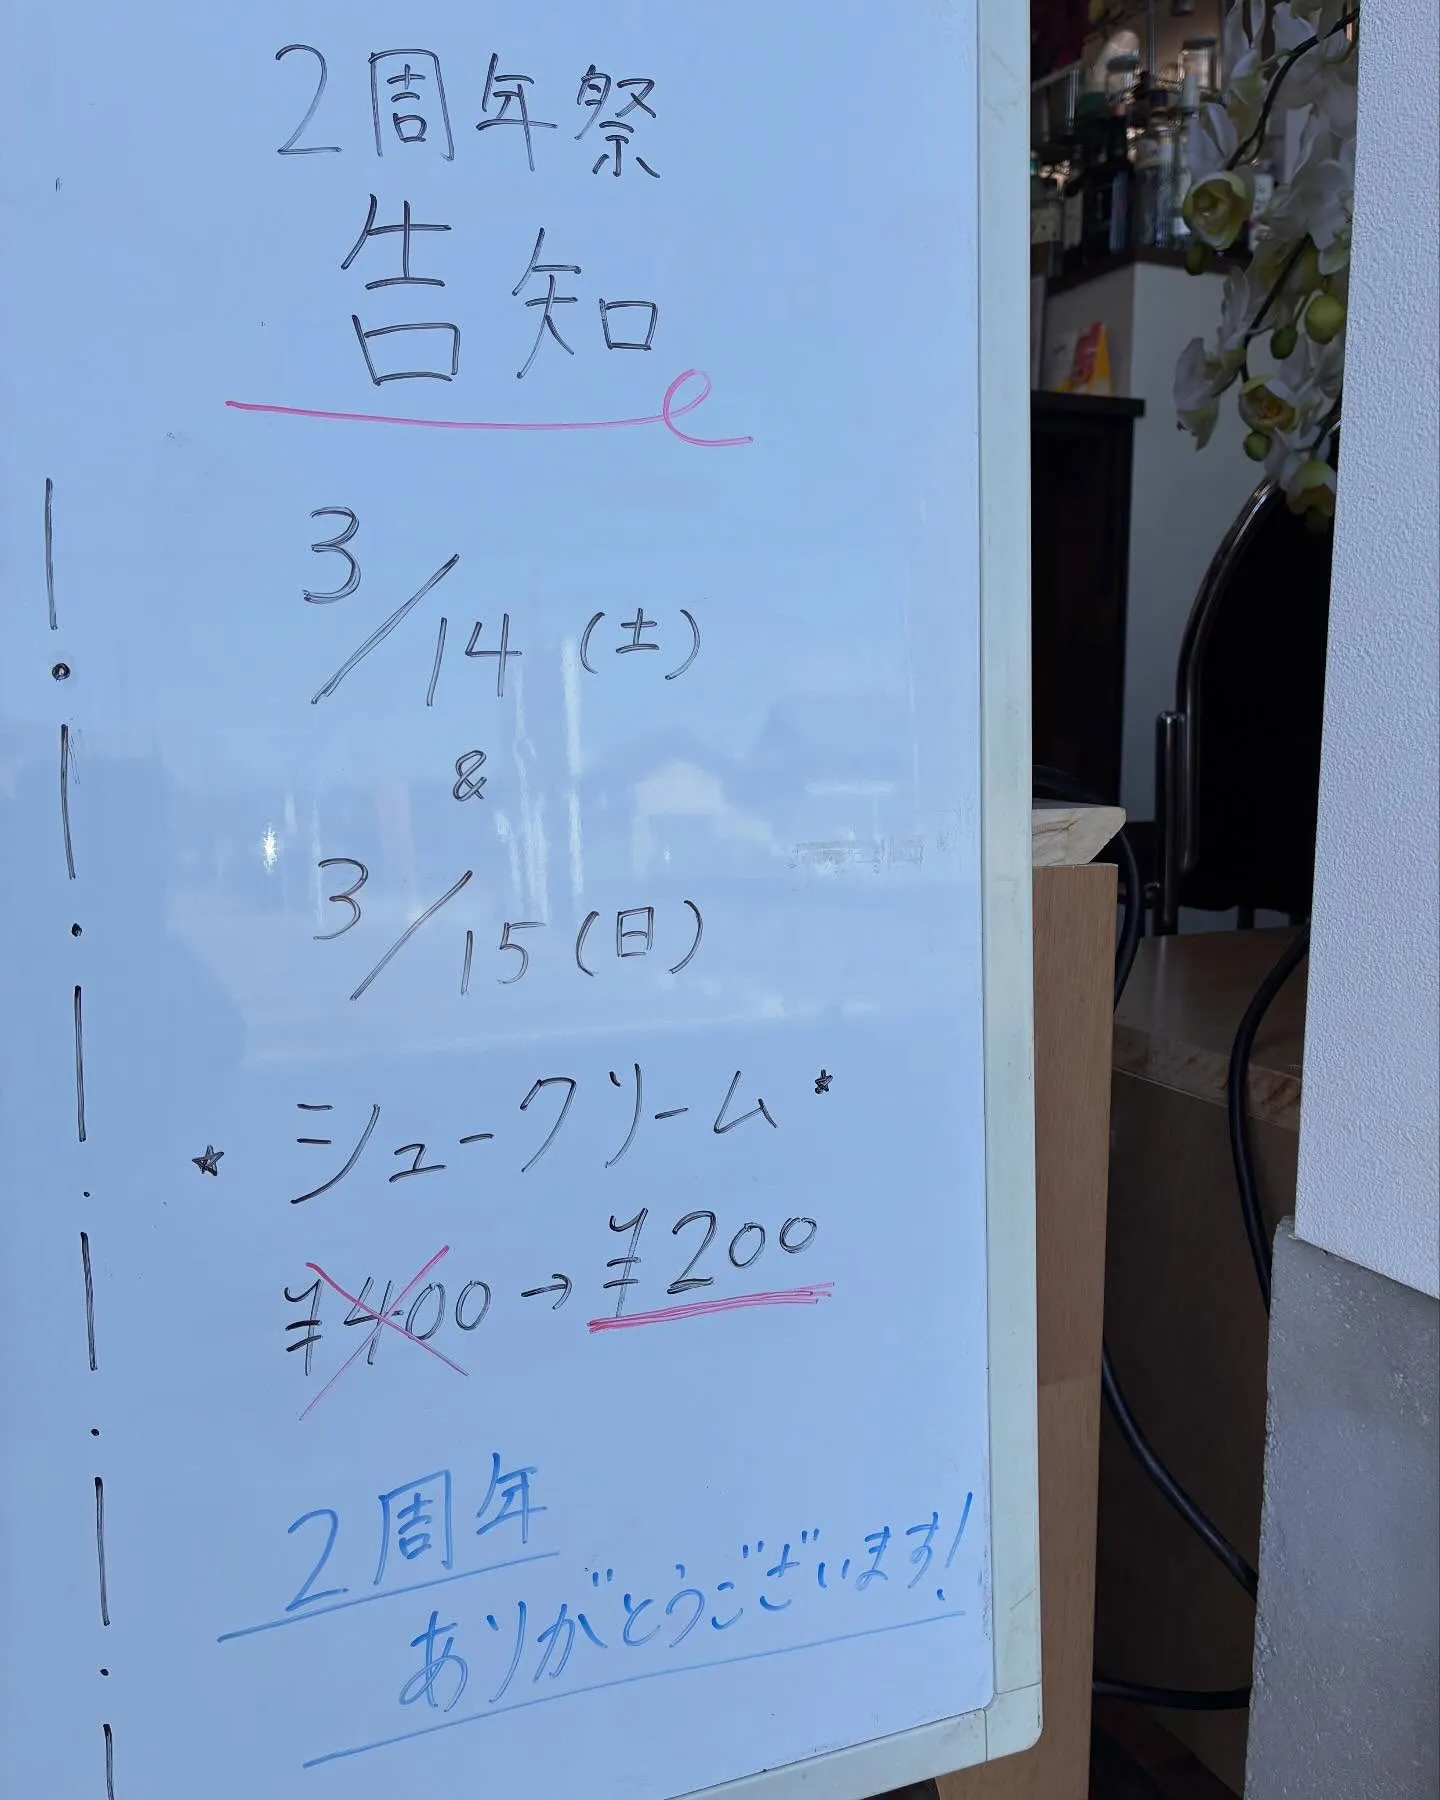 2周年祭
告知
3/14(土)
&
3/15(日)
☆ シュークリーム ☆
¥400→¥200
2周年
ありがとうございます!